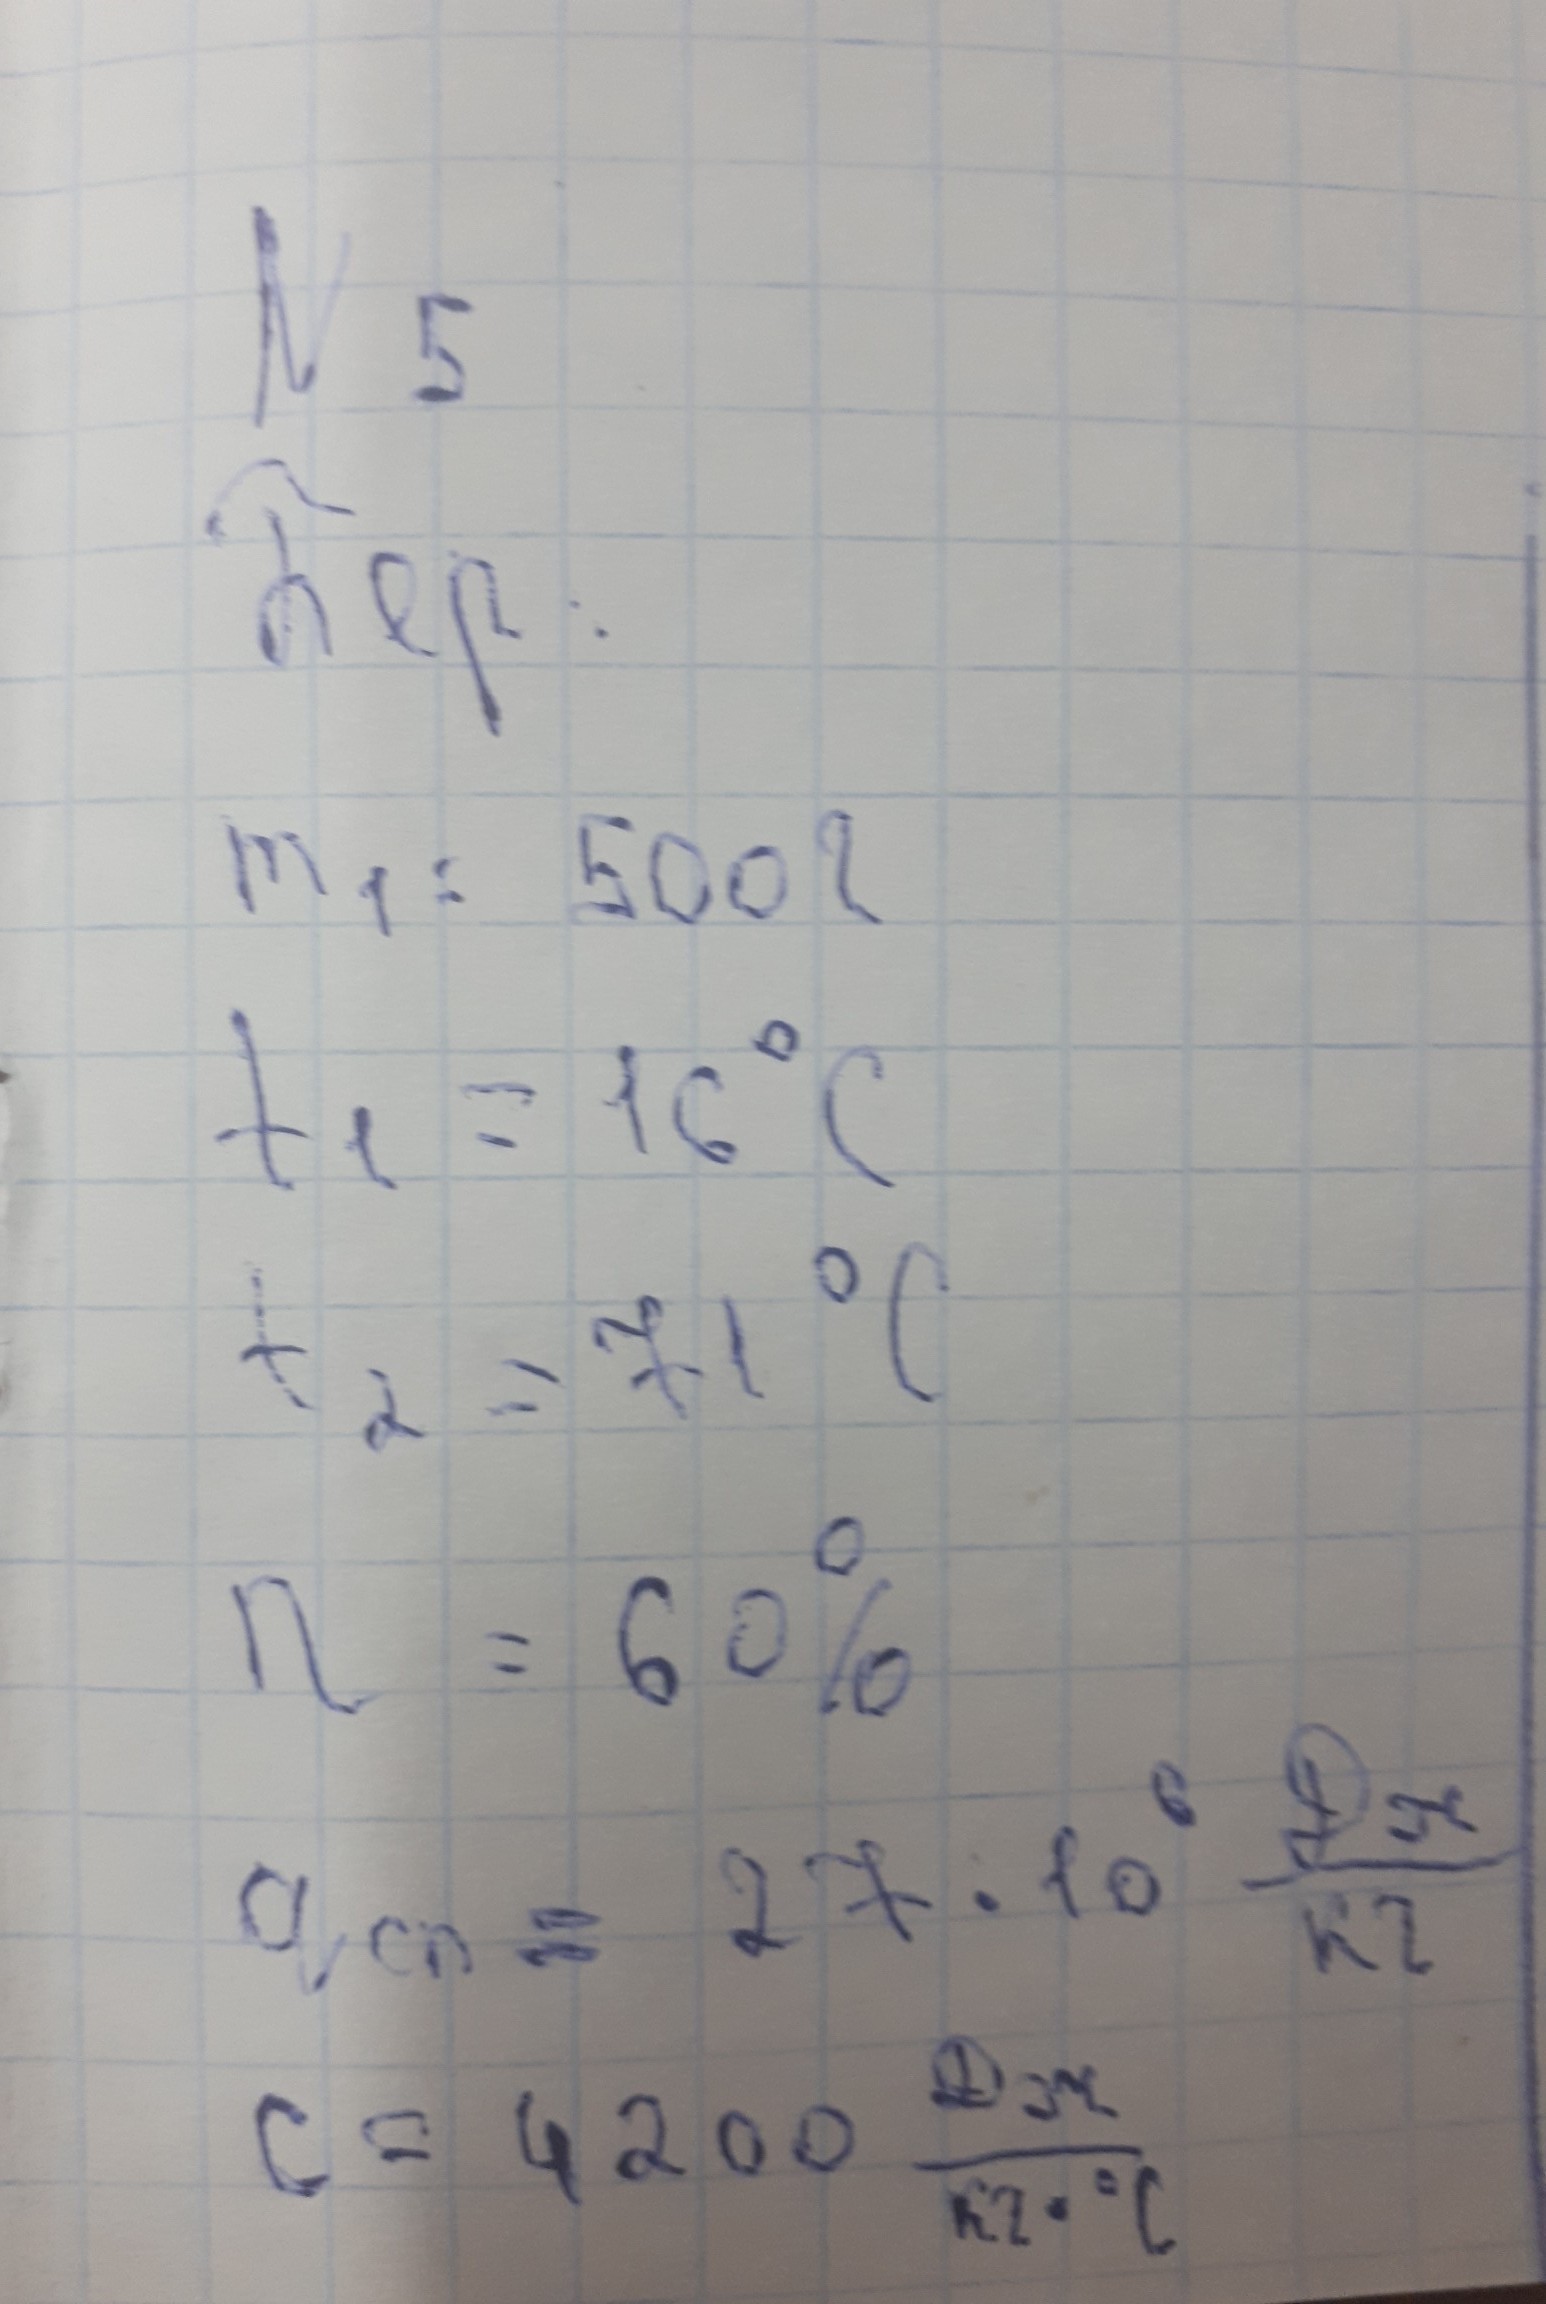 N 5
Бер:
m₁ = 500 г
t₁ = 16 °C
t₂ = 71 °C
η = 60%
qсп = 27 · 10⁶ Дж/кг
c = 4200 Дж/кг · °C